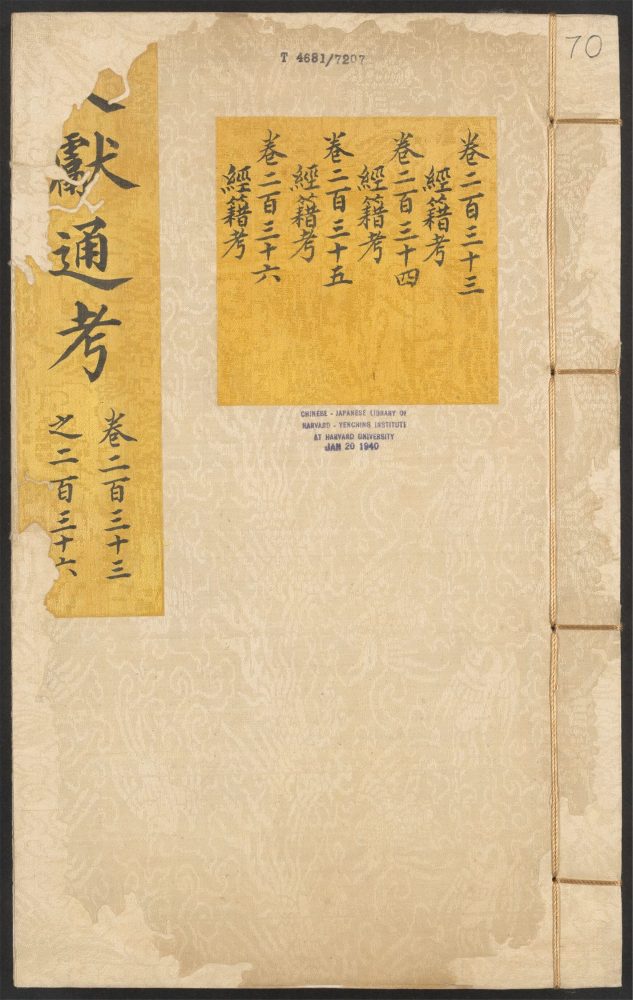 T 4681/7207
70
獻通考
卷二百三十三
之二百三十六
卷二百三十三
經籍考
卷二百三十四
經籍考
卷二百三十五
經籍考
卷二百三十六
經籍考
CHINESE - JAPANESE LIBRARY OF
HARVARD - YENCHING INSTITUTE
AT HARVARD UNIVERSITY
JAN 20 1940